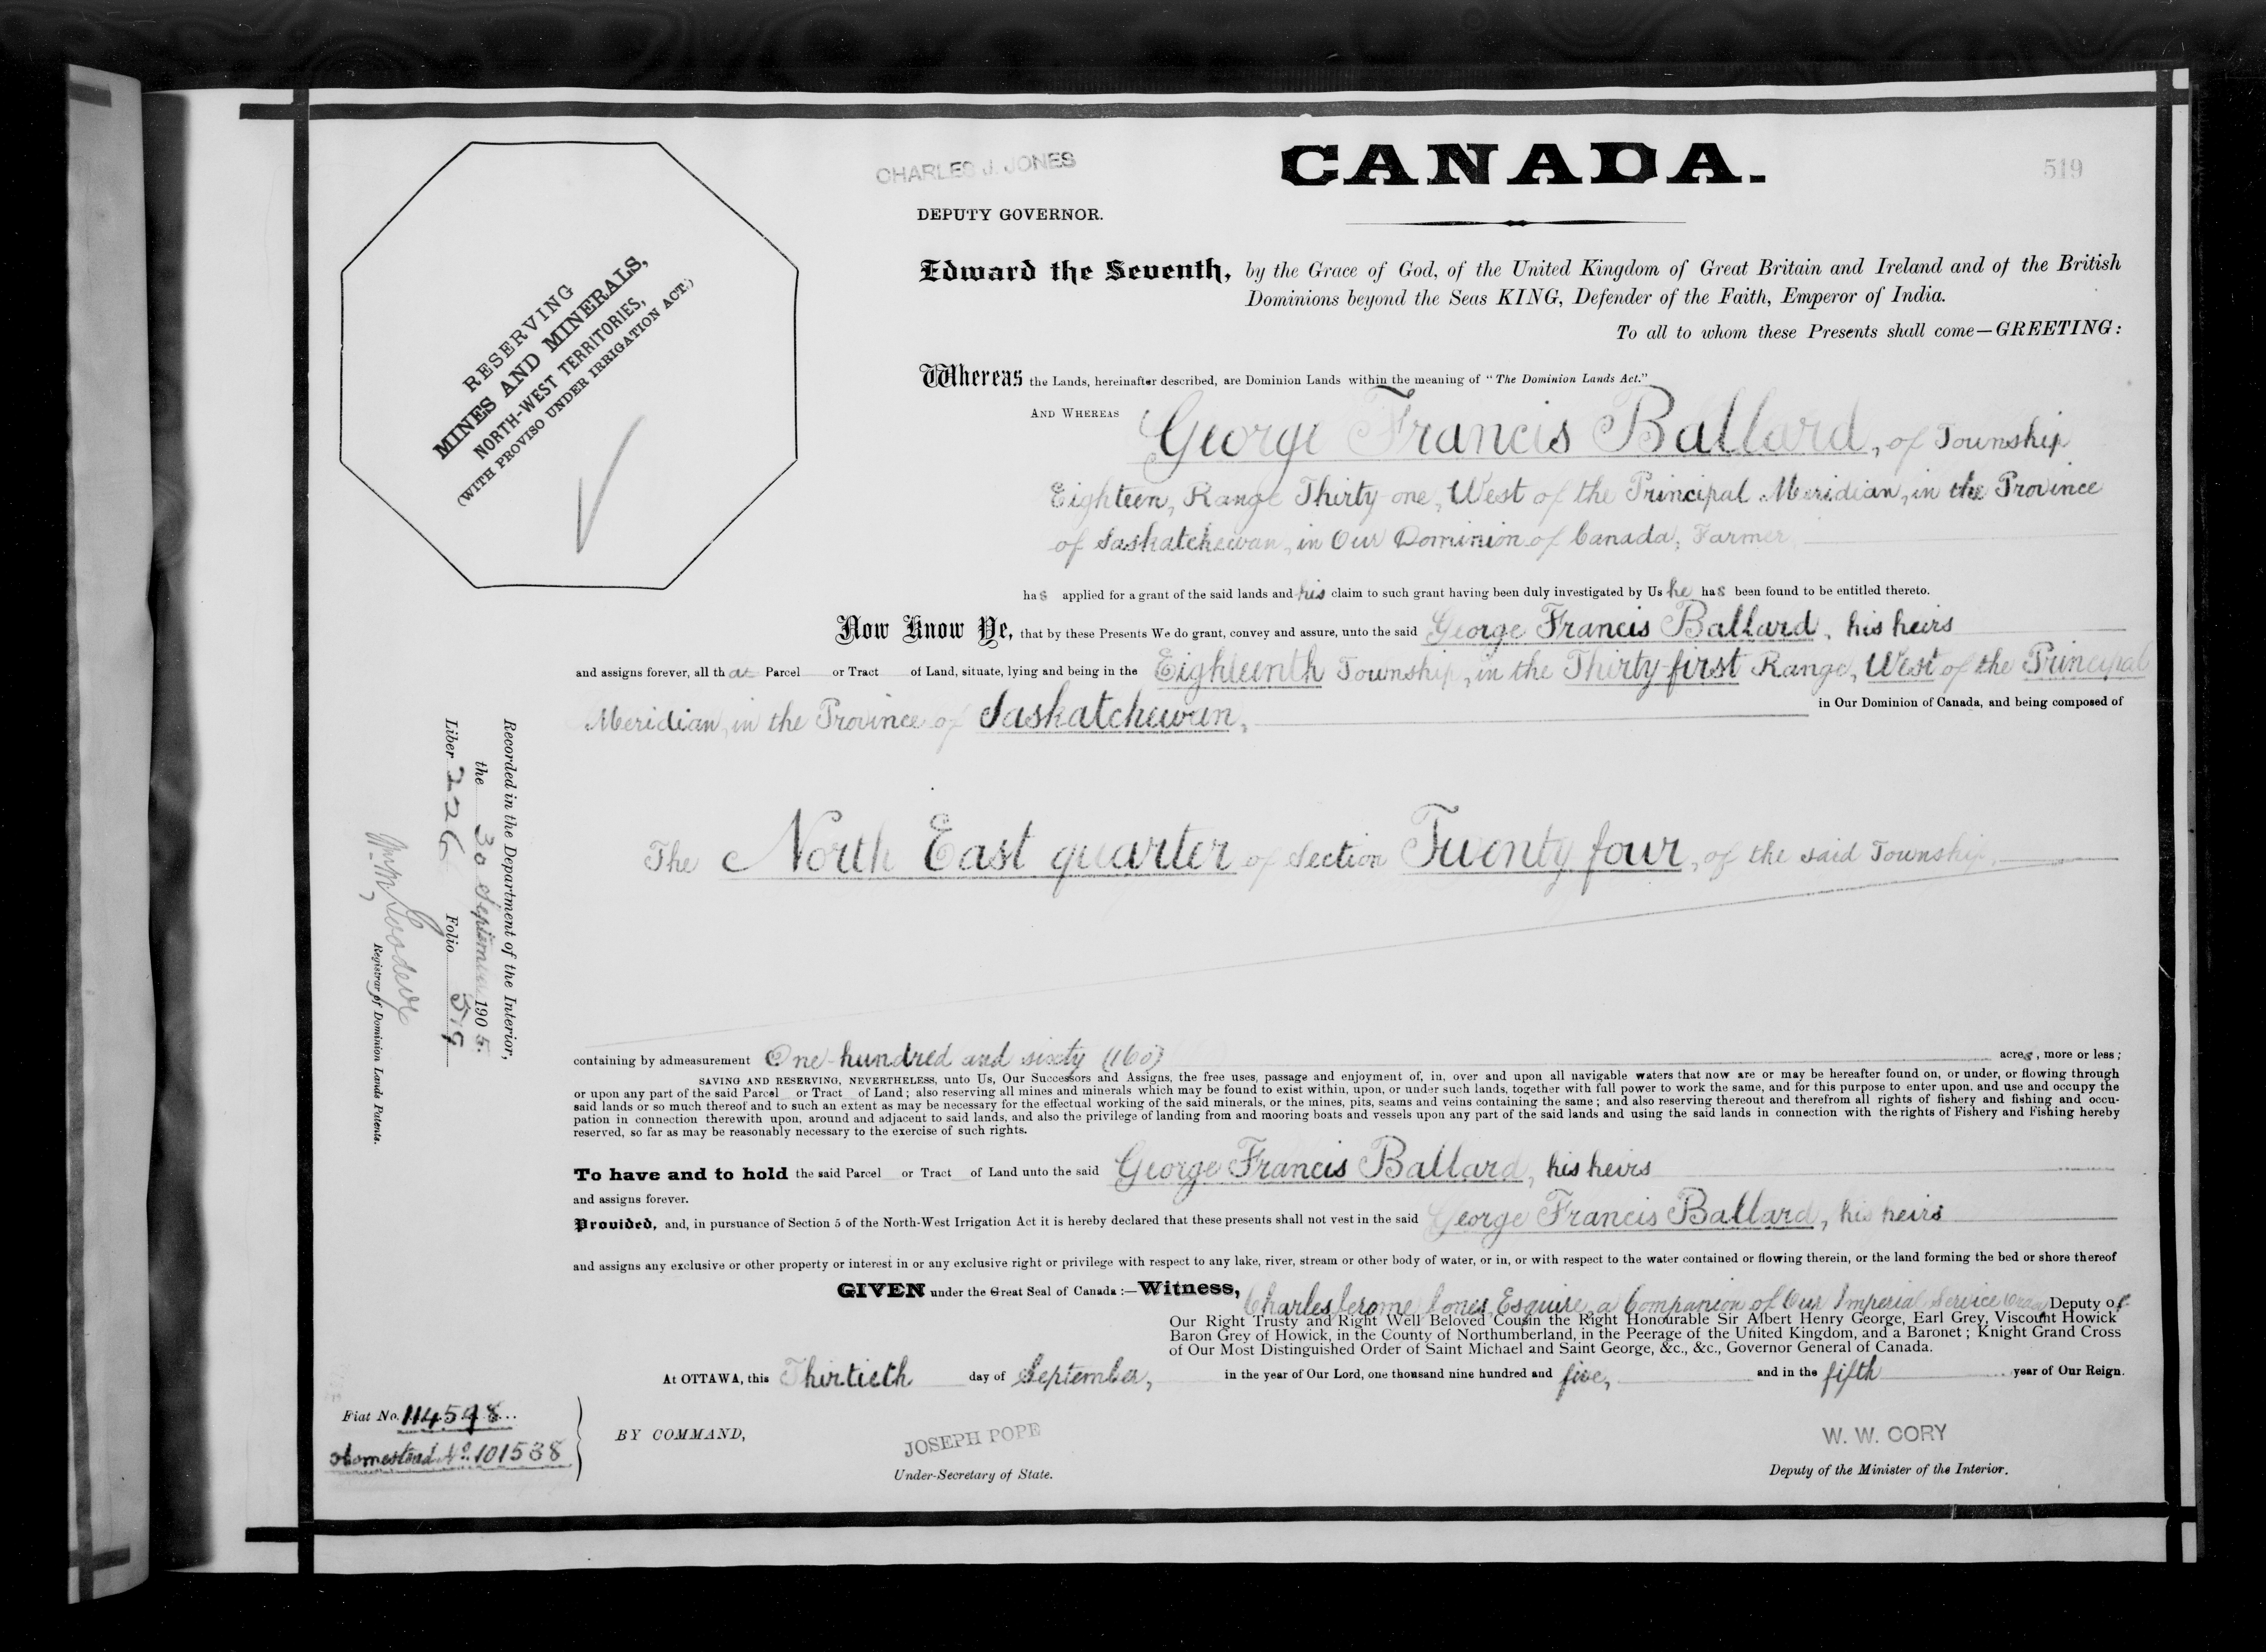 CHARLES J. JONES
CANADA.
519
DEPUTY GOVERNOR.
RESERVING
MINES AND MINERALS,
NORTH-WEST TERRITORIES,
(WITH PROVISO UNDER IRRIGATION ACT.)
Edward the Seventh, by the Grace of God, of the United Kingdom of Great Britain and Ireland and of the British
Dominions beyond the Seas KING, Defender of the Faith, Emperor of India.
To all to whom these Presents shall come—GREETING:
Whereas the Lands, hereinafter described, are Dominion Lands within the meaning of "The Dominion Lands Act."
AND WHEREAS George Francis Ballard, of Township
Eighteen, Range Thirty-one, West of the Principal Meridian, in the Province
of Saskatchewan, in Our Dominion of Canada, Farmer,
has applied for a grant of the said lands and his claim to such grant having been duly investigated by Us he has been found to be entitled thereto.
Now Know Ye, that by these Presents We do grant, convey and assure, unto the said George Francis Ballard, his heirs
and assigns forever, all that Parcel or Tract of Land, situate, lying and being in the Eighteenth Township, in the Thirty-first Range, West of the Principal
Meridian, in the Province of Saskatchewan, in Our Dominion of Canada, and being composed of
The North East quarter of Section Twenty four, of the said Township,
containing by admeasurement One hundred and sixty (160) acres, more or less;
SAVING AND RESERVING, NEVERTHELESS, unto Us, Our Successors and Assigns, the free uses, passage and enjoyment of, in, over and upon all navigable waters that now are or may be hereafter found on, or under, or flowing through
or upon any part of the said Parcel or Tract of Land; also reserving all mines and minerals which may be found to exist within, upon, or under such lands, together with full power to work the same, and for this purpose to enter upon, and use and occupy the
said lands or so much thereof and to such an extent as may be necessary for the effectual working of the said minerals, or the mines, pits, seams and veins containing the same; and also reserving thereout and therefrom all rights of fishery and fishing and occu-
pation in connection therewith upon, around and adjacent to said lands, and also the privilege of landing from and mooring boats and vessels upon any part of the said lands and using the said lands in connection with the rights of Fishery and Fishing hereby
reserved, so far as may be reasonably necessary to the exercise of such rights.
To have and to hold the said Parcel or Tract of Land unto the said George Francis Ballard, his heirs
and assigns forever.
Provided, and, in pursuance of Section 5 of the North-West Irrigation Act it is hereby declared that these presents shall not vest in the said George Francis Ballard, his heirs
and assigns any exclusive or other property or interest in or any exclusive right or privilege with respect to any lake, river, stream or other body of water, or in, or with respect to the water contained or flowing therein, or the land forming the bed or shore thereof
GIVEN under the Great Seal of Canada:—Witness, Charles Jerome Jones, Esquire, a Companion of Our Imperial Service Order Deputy of
Our Right Trusty and Right Well Beloved Cousin the Right Honourable Sir Albert Henry George, Earl Grey, Viscount Howick
Baron Grey of Howick, in the County of Northumberland, in the Peerage of the United Kingdom, and a Baronet; Knight Grand Cross
of Our Most Distinguished Order of Saint Michael and Saint George, &c., &c., Governor General of Canada.
At OTTAWA, this Thirtieth day of September, in the year of Our Lord, one thousand nine hundred and five, and in the fifth year of Our Reign.
Fiat No. 114598
Homestead No. 101538
BY COMMAND,
JOSEPH POPE
Under-Secretary of State.
W. W. CORY
Deputy of the Minister of the Interior.
Recorded in the Department of the Interior,
the 30 September 1905.
Liber 226 Folio 519
Registrar of Dominion Lands Patents.